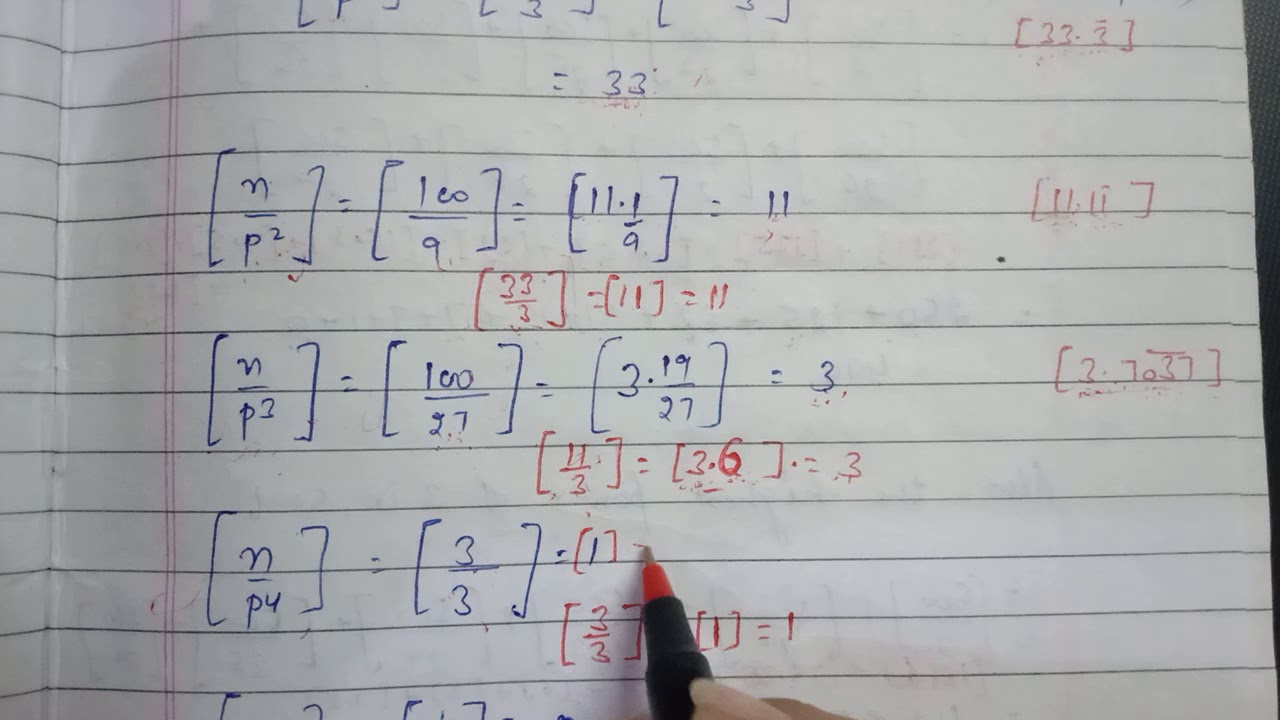 [33.3̄]
= 33
[n/p²] = [100/9] = [11.1/9] = 11 [11.11̄]
[33/3] = [11] = 11
[n/p³] = [100/27] = [3.19/27] = 3 [3.7037]
[11/3] = [3.6] = 3
[n/p4] = [3/3] = [1]
[3/3] [1] = 1